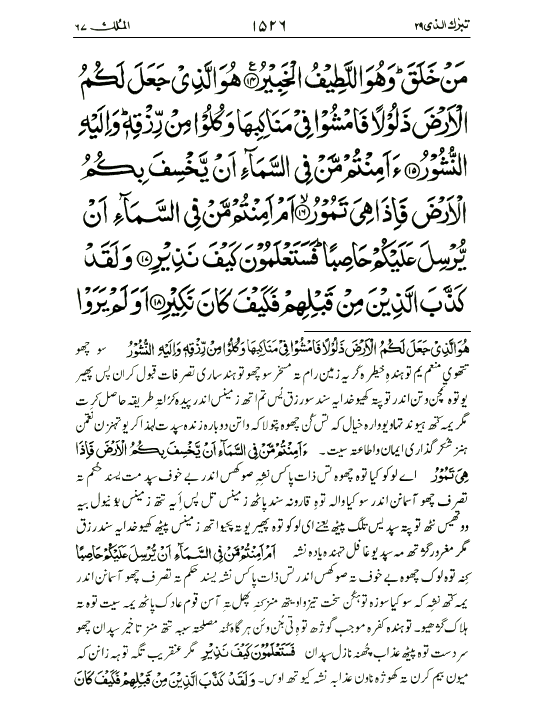 تبرك الذی ۲۹ ۱۵۲۶ الملك ۶۷
مَنْ خَلَقَ ؕ وَهُوَ اللَّطِيْفُ الْخَبِيْرُ ﴿۱۴﴾ هُوَ الَّذِيْ جَعَلَ لَكُمُ
الْاَرْضَ ذَلُوْلًا فَامْشُوْا فِيْ مَنَاكِبِهَا وَكُلُوْا مِنْ رِّزْقِهٖ ؕ وَاِلَيْهِ
النُّشُوْرُ ﴿۱۵﴾ ءَاَمِنْتُمْ مَّنْ فِي السَّمَآءِ اَنْ يَّخْسِفَ بِكُمُ
الْاَرْضَ فَاِذَا هِيَ تَمُوْرُ ﴿۱۶﴾ اَمْ اَمِنْتُمْ مَّنْ فِي السَّمَآءِ اَنْ
يُّرْسِلَ عَلَيْكُمْ حَاصِبًا ؕ فَسَتَعْلَمُوْنَ كَيْفَ نَذِيْرِ ﴿۱۷﴾ وَلَقَدْ
كَذَّبَ الَّذِيْنَ مِنْ قَبْلِهِمْ فَكَيْفَ كَانَ نَكِيْرِ ﴿۱۸﴾ اَوَلَمْ يَرَوْا
هُوَ الَّذِيْ جَعَلَ لَكُمُ الْاَرْضَ ذَلُوْلًا فَامْشُوْا فِيْ مَنَاكِبِهَا وَكُلُوْا مِنْ رِّزْقِهٖ وَاِلَيْهِ النُّشُوْرُ سو چھو
تتھوی منعم یم توہندہ خیطرہ گر یہ زمین رام تہ مسخر سو چھو توہند ساری تصرفات قبول کران پس پھیر
یو توہ وتن اندر تو پتہ کھیو خدایہ سند سو رزق یُس تم اتھ زمینس اندر پیدہ طریقہ حاصل کرت
مگر یمہ کتھ ہیوند تھاویو وارہ خیال کہ تس کُن چھوہ پتو لاکہ واتن دوبارہ زندہ سپدت لہٰذا کریو تہنزن نعمتن
ہنز شکر گذاری ایمان واطاعتہ سیت۔ ءَاَمِنْتُمْ مَّنْ فِي السَّمَآءِ اَنْ يَّخْسِفَ بِكُمُ الْاَرْضَ فَاِذَا
هِيَ تَمُوْرُ اے لوکو کیا توہ چھوہ تس ذات پاکس نشہ صوکھس اندر بے خوف سپدمت یسند حکم تہ
تصرف چھو آسمانن اندر سو کیا والہ توہ قارونہ سند پاٹھ زمینس تل پس أیہ تتھ زمینس بونیول بیہ
دوتھیس نتھ تو پتہ سپدیس تلک پیٹھ یعنے ای لوکو توہ پھیریو تہ اتھ زمینس پیٹھ کھیو خدایہ سند رزق
مگر مغرور گژھتھ مہ سپدیو غافل تہندہ یادہ نشہ اَمْ اَمِنْتُمْ مَّنْ فِي السَّمَآءِ اَنْ يُّرْسِلَ عَلَيْكُمْ حَاصِبًا
کنہ توہ لوک چھوہ بے خوف تہ صوکھس اندر تس ذات پاکس نشہ یسند حکم تہ تصرف چھو آسمانن اندر
یمہ کتھ نشہ کہ سو کیا سوزہ توہ کُن سخت تیز واو یتھ منز کنہ پھل تہ آسن قوم عادک پاٹھ یمہ سیت توہ تہ
ہلاک گژھیو۔ توہندہ کفرہ موجب گوژھ توہ تی بُن وُنی ہرگاہ کنہ مصلحتہ سببہ تتھ منز تاخیر سپدان چھو
سردست توہ پیٹھ عذاب چھنہ نازل سپدان فَسَتَعْلَمُوْنَ كَيْفَ نَذِيْرِ مگر عنقریب تگہ توہہ زانن کہ
میون بیم کرن تہ کھوژہ ناون عذابہ نشہ کیوتھ اوس۔ وَلَقَدْ كَذَّبَ الَّذِيْنَ مِنْ قَبْلِهِمْ فَكَيْفَ كَانَ